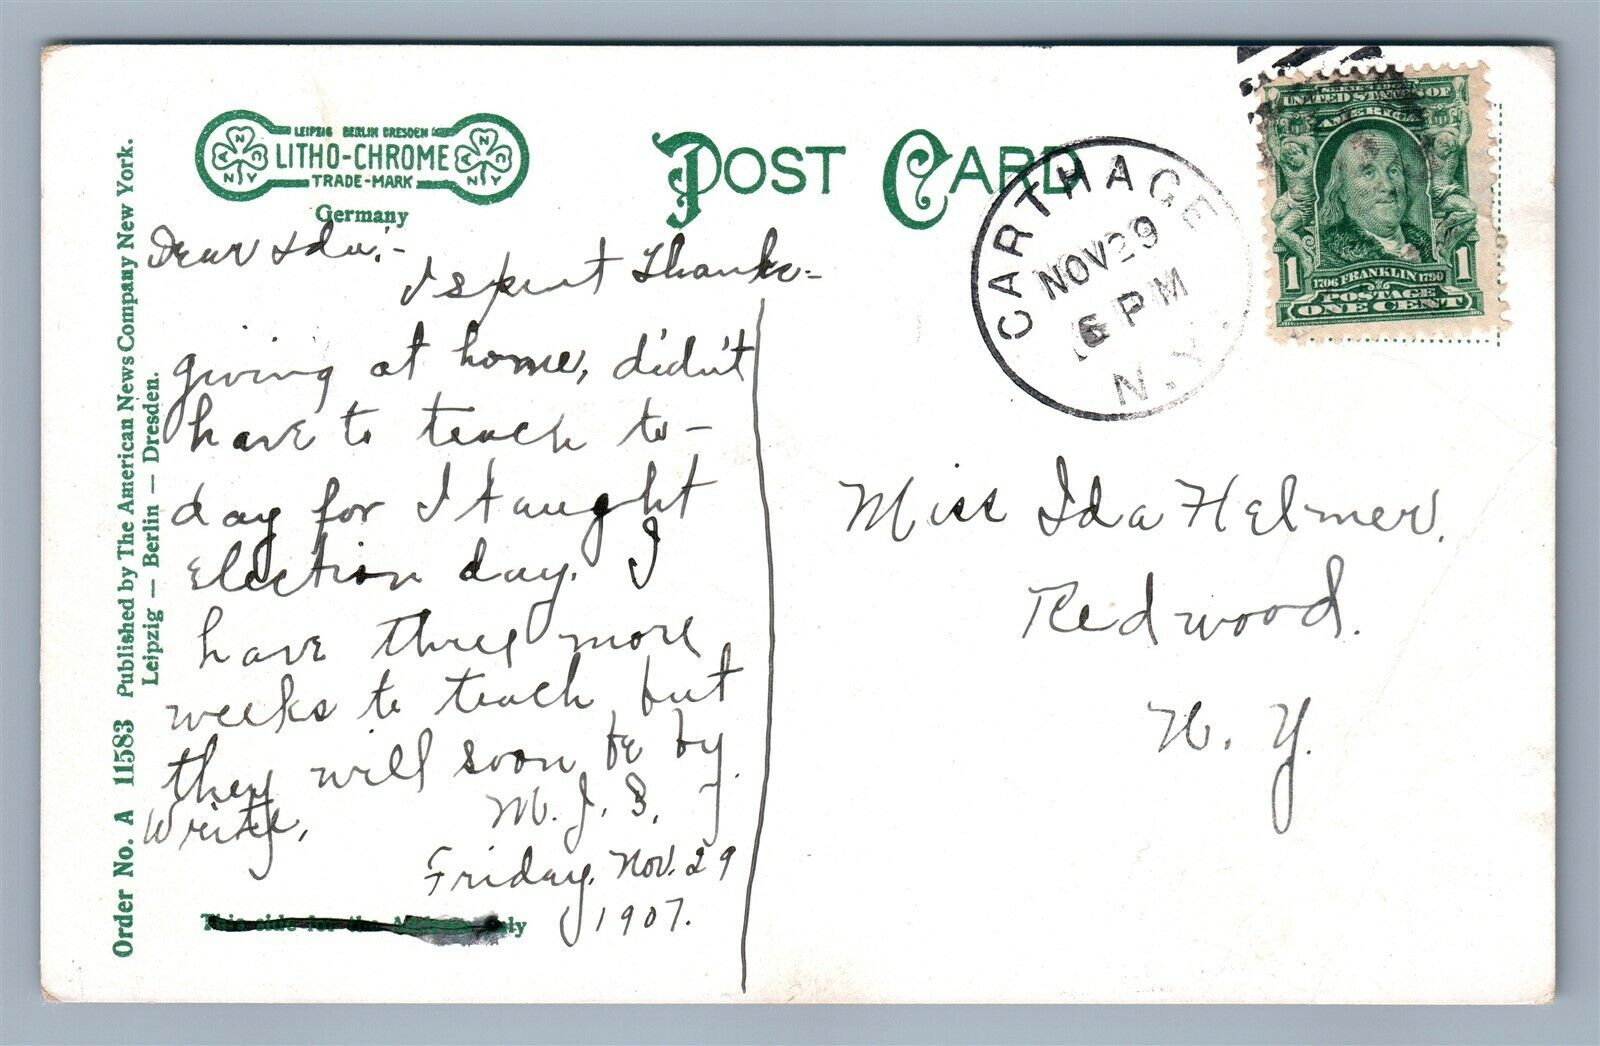 LEIPZIG BERLIN DRESDEN
LITHO-CHROME
TRADE-MARK
A N C
N Y
A N C
N Y
Germany
POST CARD
CARTHAGE
NOV 29
6 PM
N.Y.
UNITED STATES OF
AMERICA
1 1
1706 FRANKLIN 1790
POSTAGE
ONE CENT
Order No. A 11583 Published by The American News Company New York.
Leipzig — Berlin — Dresden.
Dear Ida:-
I spent Thanks-
giving at home, didn't
have to teach to-
day for I taught
Election day. I
have three more
weeks to teach but
they will soon be by.
Write, M. J. S.
Friday, Nov. 29
1907.
This side for the Address only
Miss Ida Helmer,
Redwood.
N. Y.